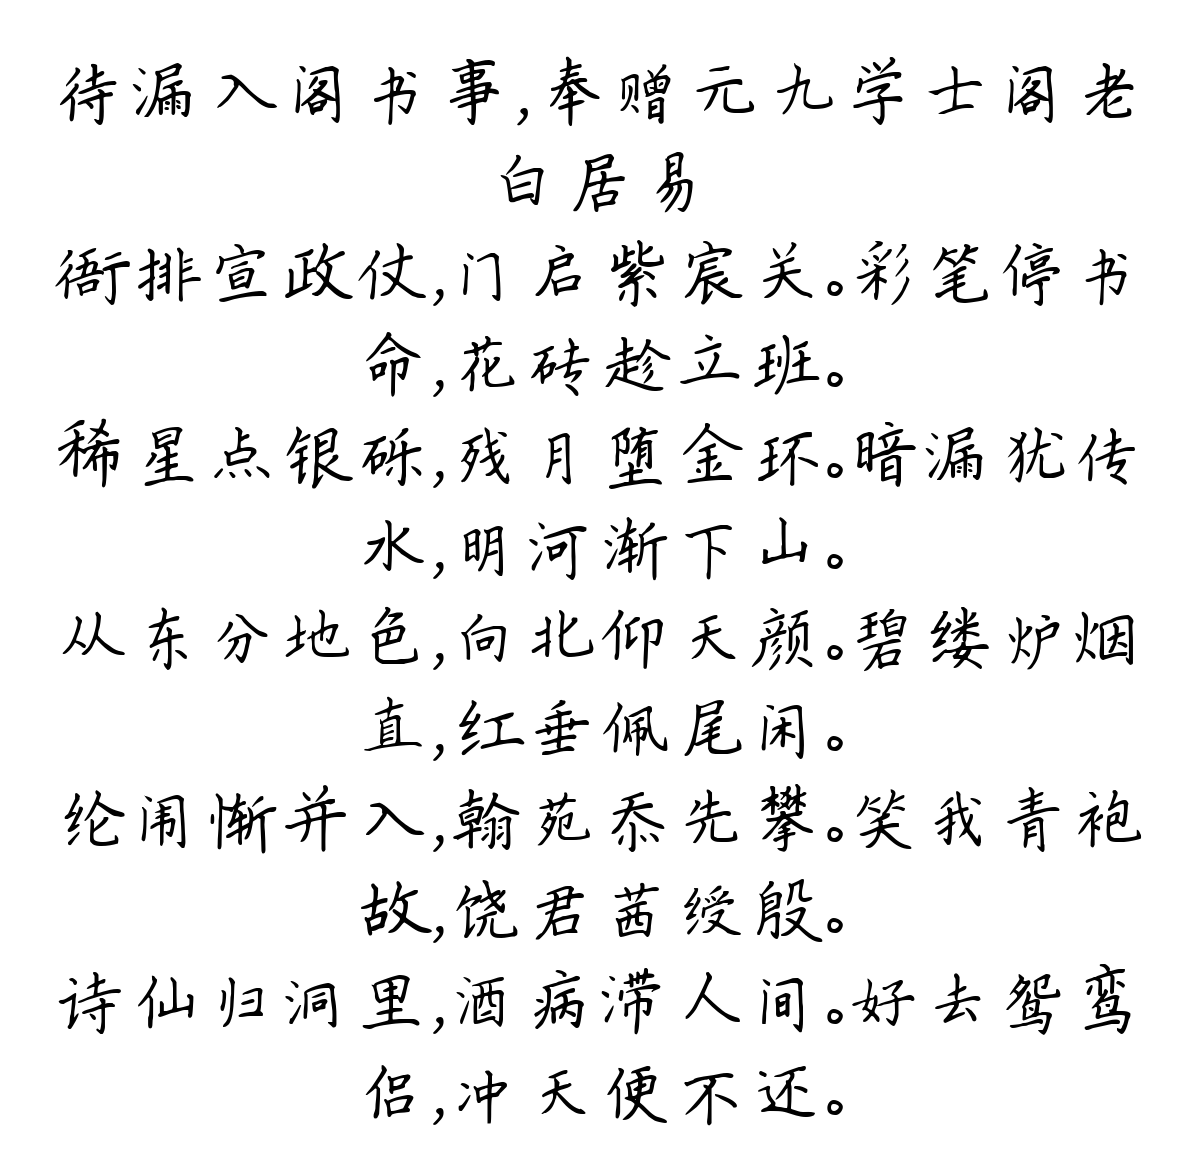 待漏入阁书事,奉赠元九学士阁老
白居易
衙排宣政仗,门启紫宸关。彩笔停书
命,花砖趁立班。
稀星点银砾,残月堕金环。暗漏犹传
水,明河渐下山。
从东分地色,向北仰天颜。碧缕炉烟
直,红垂佩尾闲。
纶闱惭并入,翰苑忝先攀。笑我青袍
故,饶君茜绶殷。
诗仙归洞里,酒病滞人间。好去鸳鸾
侣,冲天便不还。